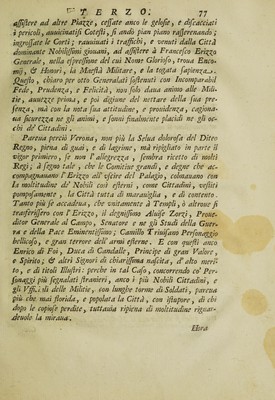 TERZO. 77
assistere ad altre Piazze, cessate anco le gelosie, e discacciati
i pericoli, auuicinatisi Cotesti, si andò pian piano rassettando;
ingrossate le Corti; rauuiuati i traffichi, e venuti dalla Città
dominante Nobilissimi giouani, ad assistere à Francesco Erizzo
Generale, nella espressione del cui Nome Glorioso, troua Enco-
mij, & Honori, la Maestà Militare, e la togata sapienza;
Questo, chiaro per otto Generalati sostenuti con Incomparabil
Fede, Prudenza, e Felicità, non solo daua animo alle Mili-
tie, auuezze prima, e poi digiune del nettare della sua pre-
senza, mà con la nota sua attitudine, e prouidenza, cagiona-
ua sicurezza ne gli animi, e sonni finalmente placidi ne gli oc-
chi de' Cittadini.
Pareua perciò Verona, non più la Selua dolorosa del Ditto
Regno, piena di guai, e di lagrime, mà ripigliato in parte il
vigor primiero, se non l'allegrezza, sembra ricetto di molti
Regi; à segno tale, che le Comitiue grandi, e degne che ac-
compagnauano l'Erizzo all'vscire del Palagio, colmauano con
la moltitudine de' Nobili così esterni, come Cittadini, vestiti
pomposamente, la Città tutta di marauiglia, e di contento.
Tanto più se accadeua, che vnitamente à Tempii, ò altroue si
trasferissero con l'Erizzo, il degnissimo Aluise Zorzi, Proue-
ditor Generale al Campo, Senatore e ne gli Studi della Guer-
ra e della Pace Eminentissimo; Camillo Triuisano Personaggio
bellicoso, e gran terrore dell'armi esterne. E con questi anco
Enrico di Foi, Duca di Candalle, Principe di gran Valore,
e Spirito; & altri Signori di chiarissima nascita, d'alto meri-
to, e di titoli Illustri: perche in tal Caso, concorrendo co' Per-
sonaggi più segnalati stranieri, anco i più Nobili Cittadini, e
gli Vfficiali delle Militie, con lunghe torme di Soldati, pareua
più che mai florida, e popolata la Città, con istupore, di chi
dopo le copiose perdite, tuttauia ripiena di moltitudine riguar-
deuole la miraua.